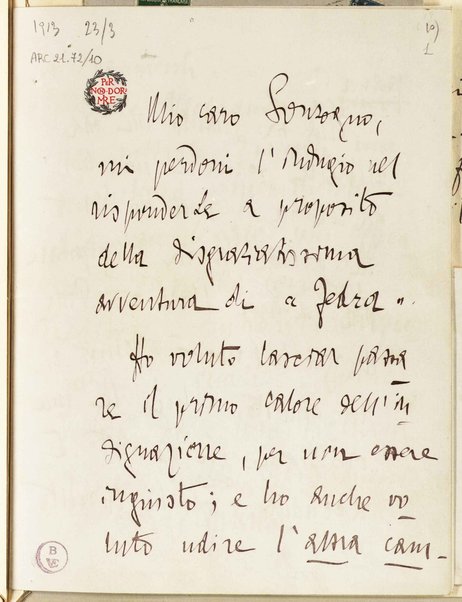 1913 23/3
ARC 21.72/10
10)
1
PER
NON DOR
MIRE
Mio caro Sonzogno,
mi perdoni l'indugio nel
risponderLe a proposito
della disgraziatissima
avventura di « Fedra ».
Ho voluto lasciar passa
re il primo calore dell'in
dignazione, per non essere
ingiusto; e ho anche vo
luto udire l'altra cam-
B
VE